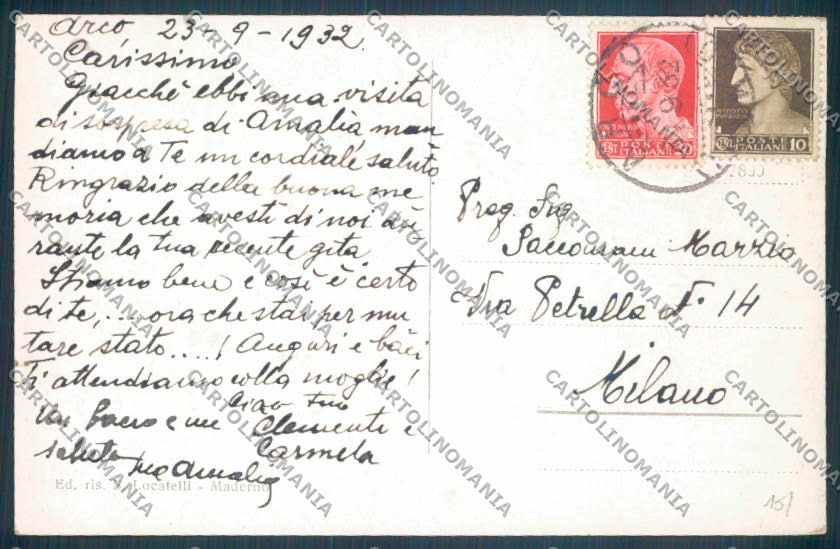 Arco, 23-9-1932.
Carissimo
Giacchè ebbi una visita
di sorpresa di Amalia man
diamo a Te un cordiale saluto.
Ringrazio della buona me
moria che avesti di noi du
rante la tua recente gita.
Stiamo bene e così è certo
di te,... ora che stai per mu
tare stato.....! Auguri e baci
Ti attendiamo colla moglie!
Ciao tuo
Un bacio e un Clemente e
saluto Carmela
tua Amalia
Ed. ris. Locatelli - Maderno
POSTE ITALIANE
POSTE ITALIANE 10
Preg. Sig.
Marzio
Via Petrella N. 14
Milano
15/
CARTOLINOMANIA